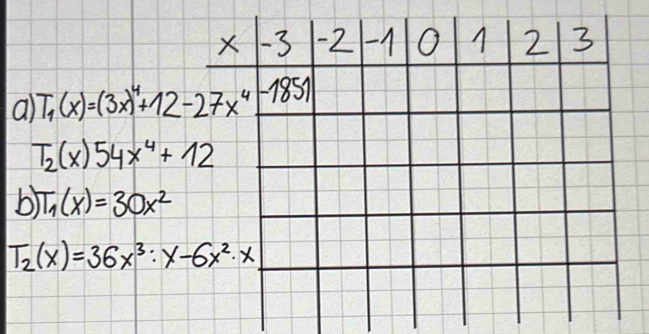 x | -3 | -2 | -1 | 0 | 1 | 2 | 3
a) T₁(x)=(3x)⁴+12-27x⁴ | -1851
T₂(x) 54x⁴+12
b) T₁(x)=30x²
T₂(x)=36x³:x-6x²·x